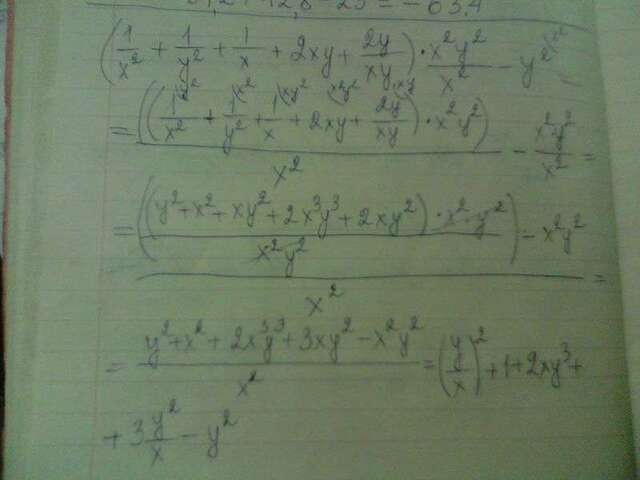 + 12,8 - 25 = - 63,4
(1/x² + 1/y² + 1/x + 2xy + 2y/xy) · x²y²/x² - y²
= ((1/x² + 1/y² + 1/x + 2xy + 2y/xy) · x²y²)/x² - x²y²/x² =
= (((y² + x² + xy² + 2x³y³ + 2xy²) · x² · y²)/x²y²) - x²y²/x² =
= (y² + x² + 2x³y³ + 3xy² - x²y²)/x² = (y/x)² + 1 + 2xy³ +
+ 3 y²/x - y²